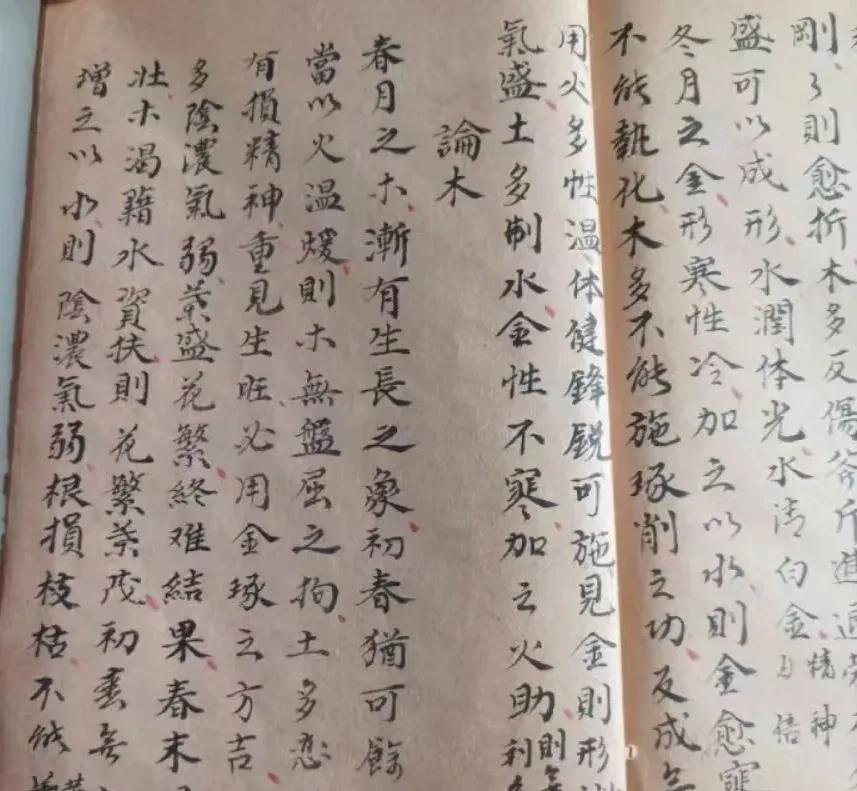 剛々則愈折木多反傷斧斤進
盛可以成形水潤体光水清白金精神
冬月之金形寒性冷加之以水則金愈寒
不能執化木多不能施琢削之功反成
用火多性温体健鋒鋭可施見金則形
氣盛土多制水金性不寒加之火助則
論木
春月之木漸有生長之象初春猶可餘
當以火温煖則木無盤屈之拘土多恋
有損精神重見生旺必用金琢之方吉
多陰濃氣弱葉盛花繁終难結果春末
壯木渴藉水資扶則花繁葉茂初春無
增之以水則陰濃氣弱根損枝枯不能